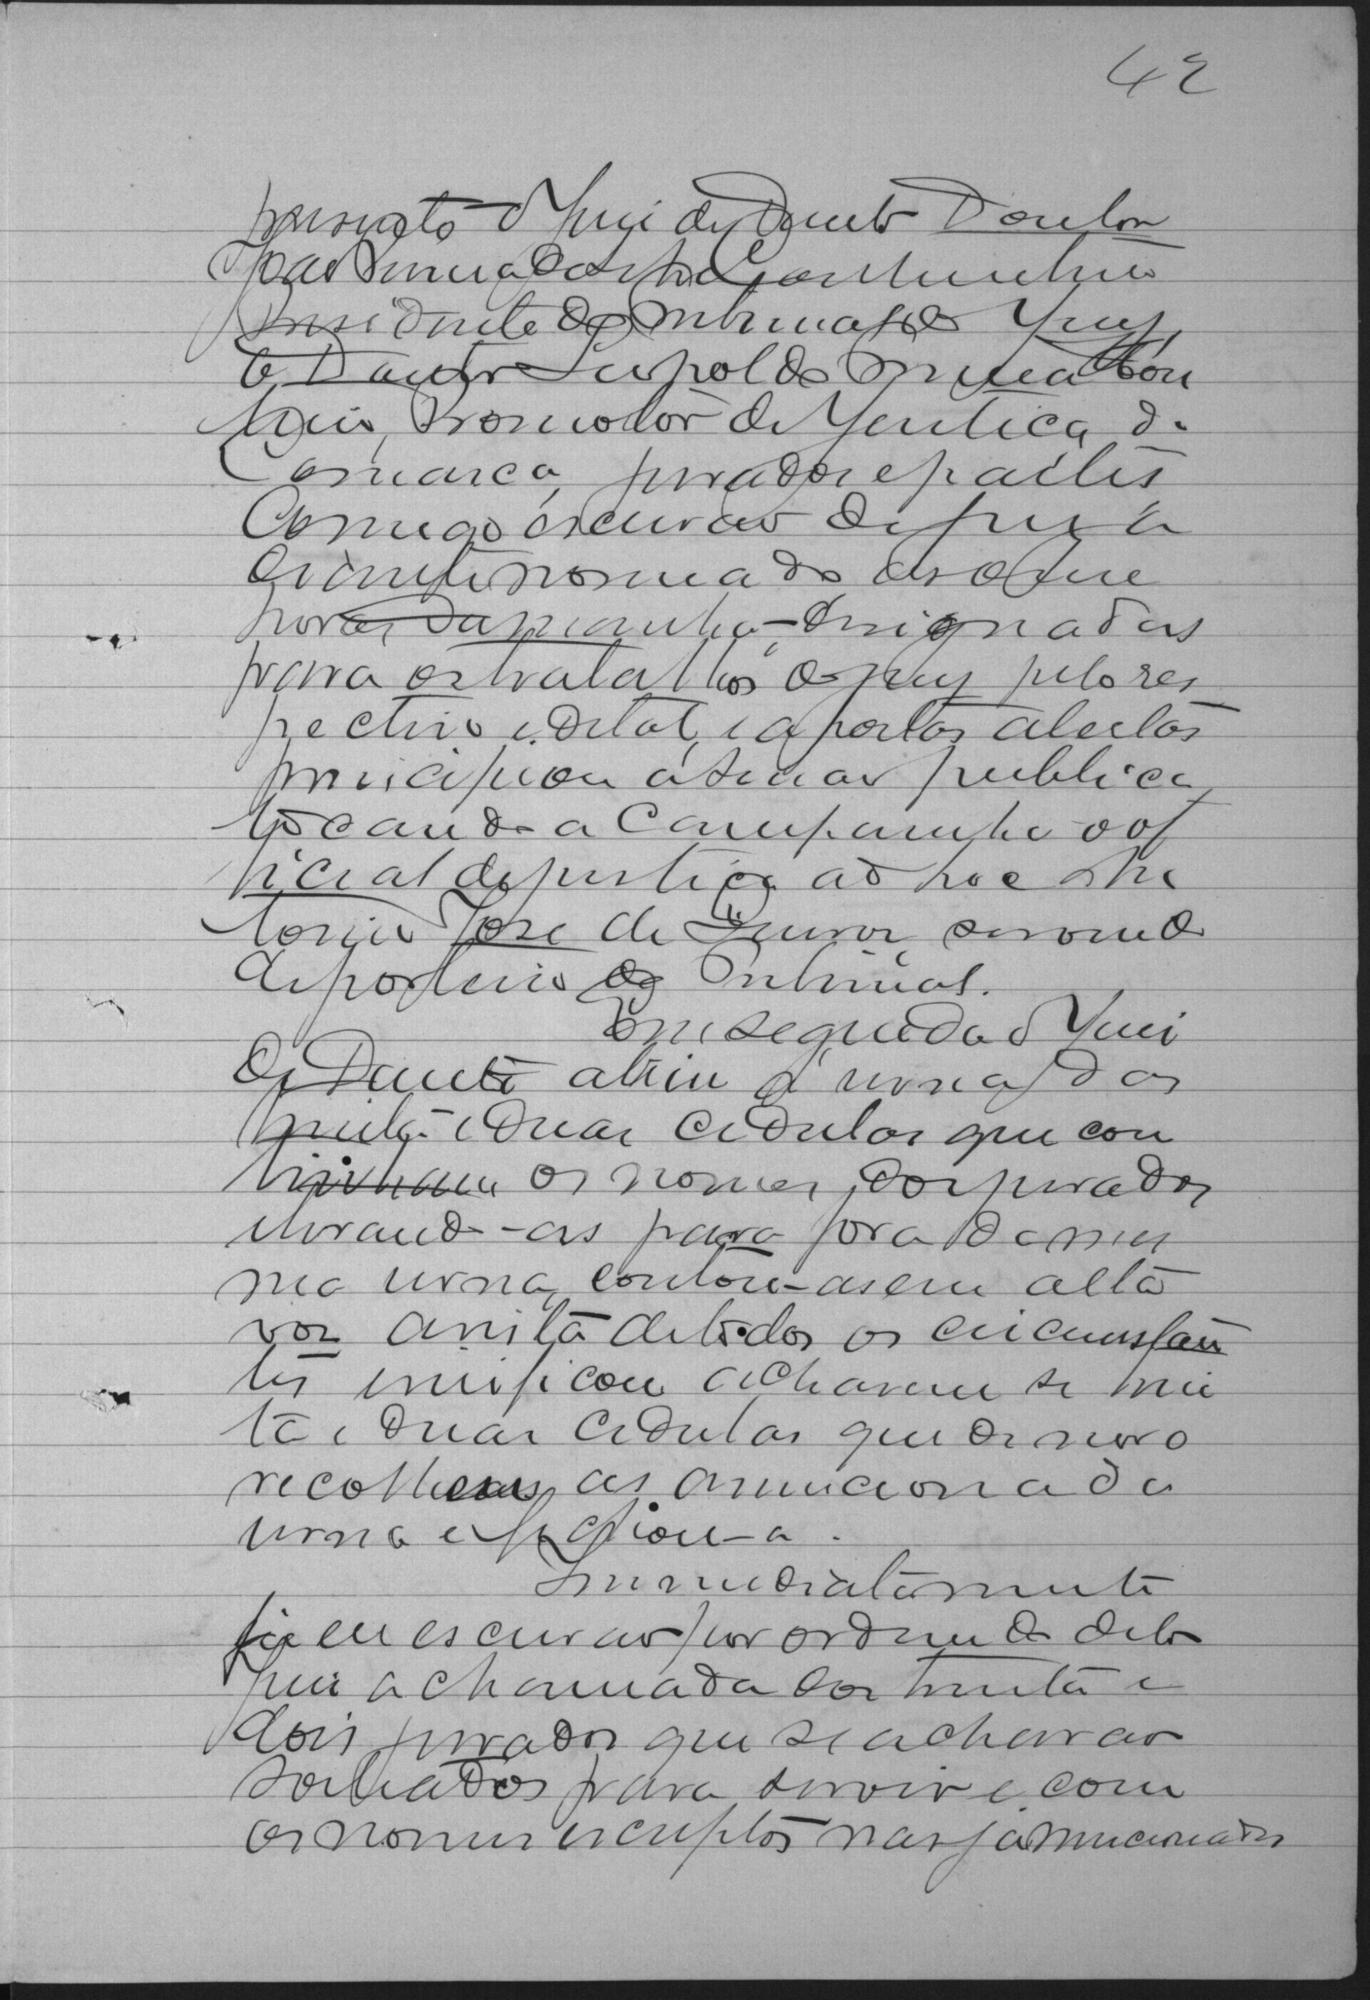 42
presente o Juiz de Direito Doutor
Presidente do Tribunal do Jury,
o Doutor Leopoldo
Promotor de Justiça da
Comarca, jurados e partes,
Comigo escrivão do jury a
diante nomeado as onze
horas da manhã designadas
para os trabalhos do jury pelo res
pectivo edital, e a portas abertas
principiou a sessão publica
tocando a Campainha o of
ficial de justiça ad hoc An
tonio José de servindo
de porteiro do Tribunal.
Em seguida o Juiz
de Direito abriu a urna das
trinta e duas cedulas que con
tinham os nomes dos jurados
e tirando-as para fora da mes
ma urna, contou-as em alta
voz a vista de todos os circunstan
tes verificou acharem se trin
ta e duas cedulas que de novo
recolheu as a mencionada
urna e fechou-a.
Immediatamente
fiz eu escrivão por ordem do dito
juiz a chamada dos trinta e
dois jurados que se achavão
sorteados para servir e com
os nomes escriptos nas já mencionadas